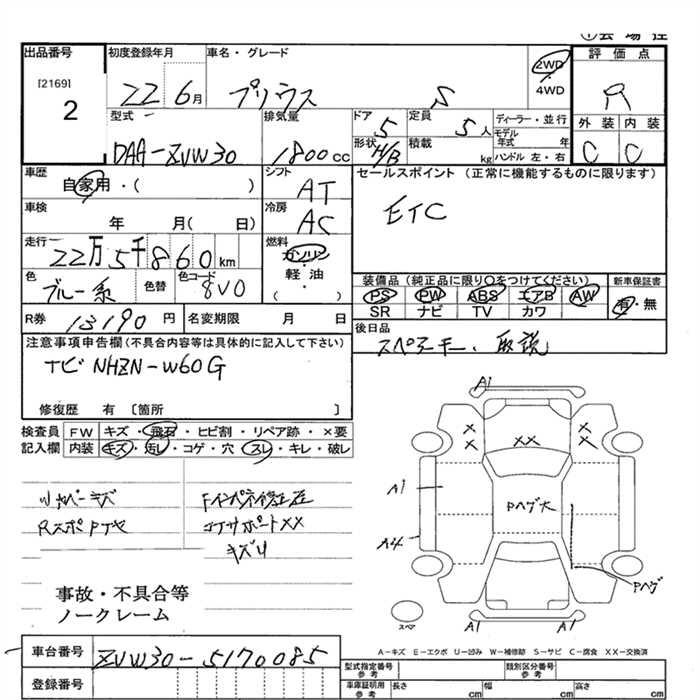 ①会場控
出品番号
[2169]
2
初度登録年月
22 6月
車名・グレード
プリウス S
2WD
・
4WD
評価点
R
外装 内装
C C
型式
DAA-ZVW30
排気量
1800cc
ドア
5
形状
H/B
定員
5人
積載
kg
ディーラー・並行
モデル
年式 年
ハンドル 左・右
車歴
自家用・( )
シフト
AT
車検
年 月( 日)
冷房
AC
走行
22万5千860km
燃料
ガソリン
・
軽油
( )
色
ブルー系
色替
色コード
8V0
R券 13190円
名変期限 月 日
セールスポイント (正常に機能するものに限ります)
ETC
装備品(純正品に限り○をつけてください)
PS PW ABS エアB AW
SR ナビ TV カワ
新車保証書
有・無
後日品
スペアキー、取説
注意事項申告欄(不具合内容等は具体的に記入して下さい)
ナビ NHZN-W60G
修復歴 有 [箇所 ]
検査員 FW キズ・飛石・ヒビ割・リペア跡・×要
記入欄 内装 キズ・汚レ・コゲ・穴・スレ・キレ・破レ
リヤバーキズ
コアサポートXX
キズリ
事故・不具合等
ノークレーム
A1
A1
A4
Pヘゲ大
Pヘゲ
A1
A1
スペア
A-キズ E-エクボ U-凹み W-補修跡 S-サビ C-腐食 XX-交換済
車台番号 ZVW30-5170085
登録番号
型式指定番号
参考
類別区分番号
参考
車庫証明用
参考
長さ cm 幅 cm 高さ cm